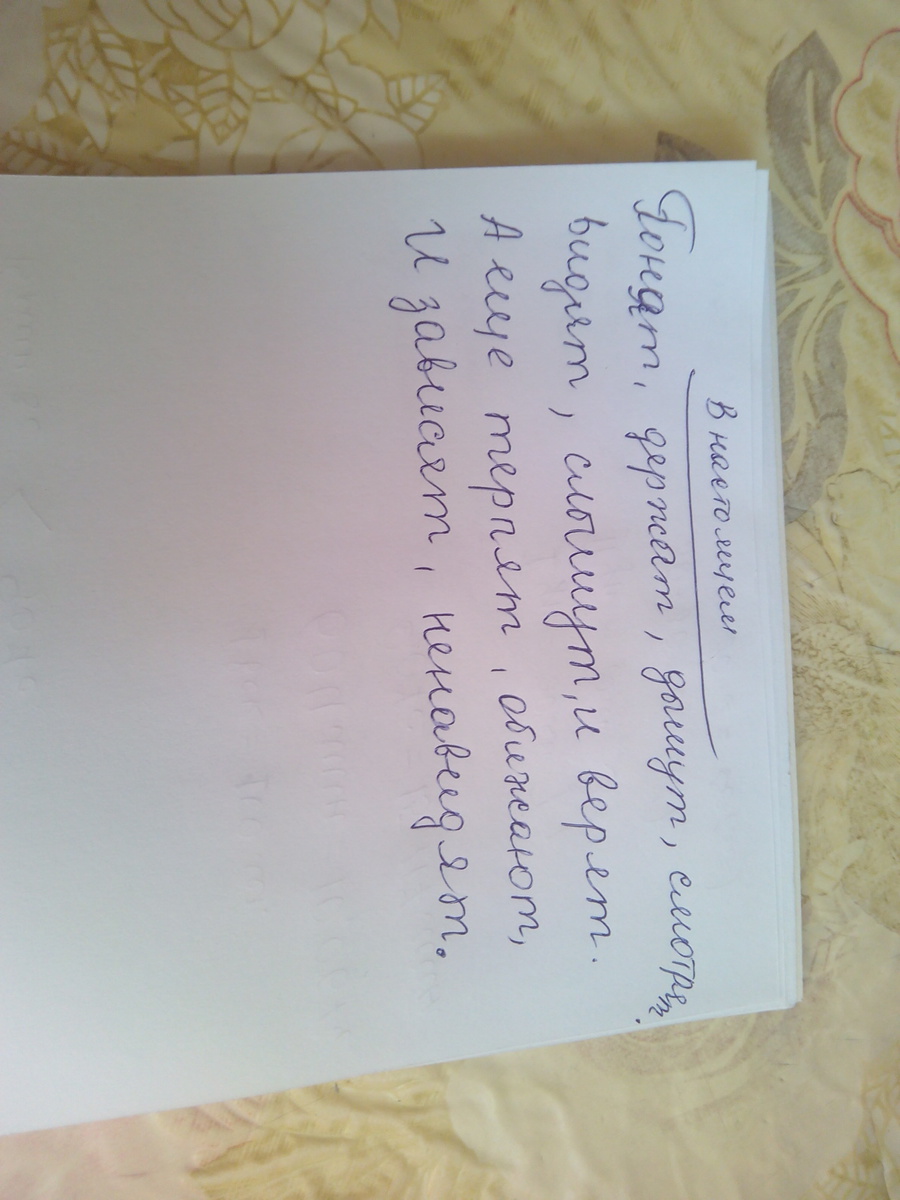 В настоящем
Гонят, держат, дышут, смотрят.
видят, слышут, и верят.
А еще терпят, обижают,
И зависят, ненавидят.